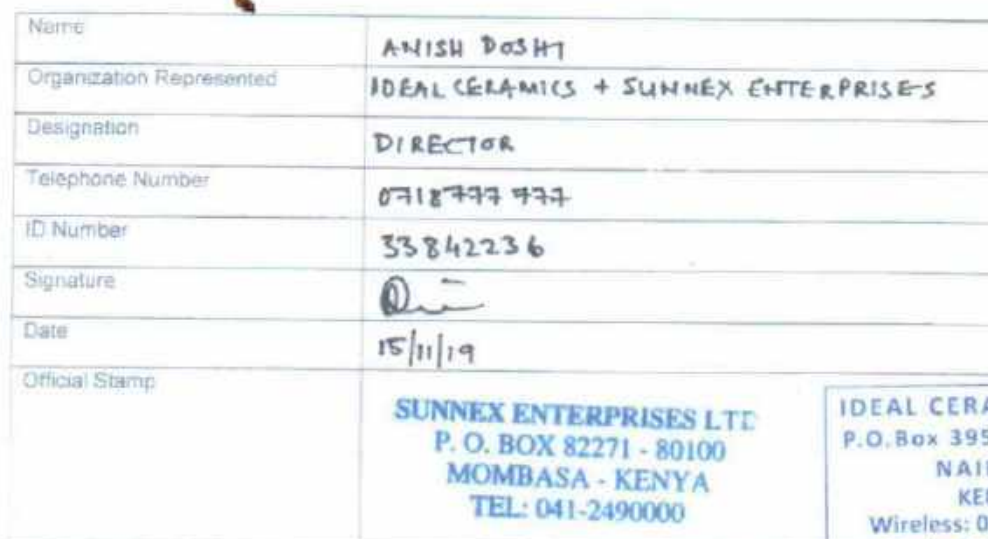 Name
ANISH DOSHI
Organization Represented
IDEAL CERAMICS + SUNNEX ENTERPRISES
Designation
DIRECTOR
Telephone Number
0718777 777
ID Number
33842236
Signature
Date
15/11/19
Official Stamp
SUNNEX ENTERPRISES LTD
P. O. BOX 82271 - 80100
MOMBASA - KENYA
TEL: 041-2490000
IDEAL CERA
P.O.Box 395
NAI
KE
Wireless: 0